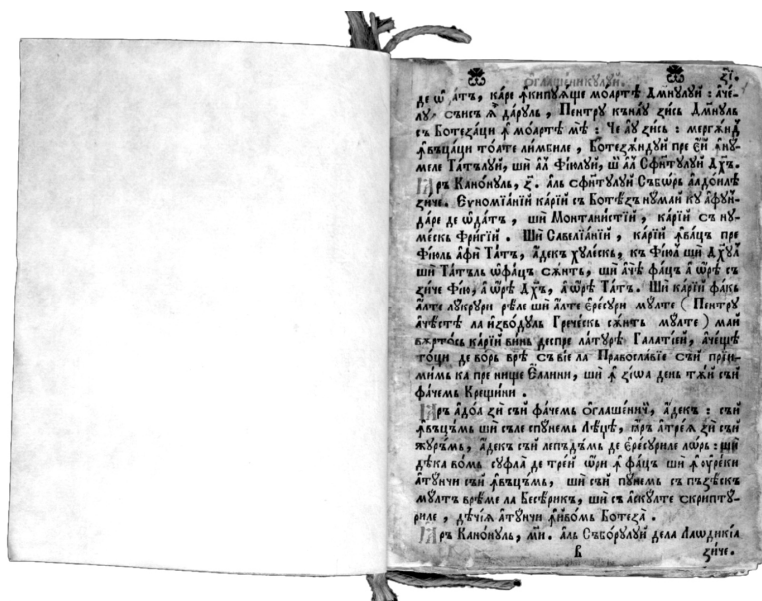 ѻглаше́нїкꙋлꙋй. з҃і.
де ѡ҆ да́тъ, ка́ре ꙟ҆кипꙋѧ́ще моа́ртѣ Дм҃нꙋлꙋй : аче́-
лꙋ, съ́нсъ ꙟ҆ да́рꙋль, Пе́нтрꙋ къ нꙋ зи́съ Дм҃нꙋль
съ Ботеза́ци ꙟ҆ моа́ртѣ мѣ̀ : Че а҆ꙋ зи́съ : мерга́нд
ꙟ҆въца́ци тоа́те ли́мбиле, Ботеза́ндꙋй пре є҆́й ꙟ҆нꙋ́-
меле Та́тълꙋй, шѝ а҆́л Фі́юлꙋй, ш҆ѝ а҆́л Сфн҃тꙋлꙋй Дх҃ъ.
Ꙗ҆́ръ Кано́нꙋль, з҃. а҆́ль сфн҃тꙋлꙋй Събѡ́рь а҆лдо́илѣ
зи́че. Єѵномїа́нїй ка́рїй съ Боте́зъ нꙋ́май кꙋ а҆фꙋн-
да́ре де ѡ҆да́тъ, шѝ Монтани́стїй, ка́рїй съ нꙋ-
ме́скь Фри́гїй. Шѝ Савелїа́нїй, ка́рїй ꙟ҆ва́цъ пре
Фі́юль а҆фѝ Та́тъ, а҆́декъ хꙋле́скь, къ Фі́юл шѝ Дх҃ꙋл
шѝ Та́тъль ѡ҆фа́цъ сѫ́нть, шѝ а҆чѣ̀ фа́цъ а҆ ѡ҆́рѣ съ
зи́че Фі́ю, а҆ ѡ҆́рѣ Дх҃ъ, а҆ ѡ҆́рѣ Та́тъ. Шѝ ка́рїй фа́кь
а҆́лте лꙋ́крꙋри рѣ́ле шѝ а҆́лте є҆ре́сꙋри мꙋ́лте ( Пе́нтрꙋ
а҆чѣ́стѣ ла и҆зво́дꙋль Грече́скь сѫ́нть мꙋ́лте ) май
въ́рто́сь ка́рїй ви́нь де́спре ла́тꙋрѣ Гала́тїей, а҆че́щѣ
то́ци де во́рь врѣ̀ съ ві́е ла Правосла́вїе съ́й прїи-
ми́мь ка пре ни́ще Є҆́ллини, шѝ ꙟ҆ зі́ѡа ден тѫ́й съ́й
фа́чемь Крещи́ни.
Ꙗ҆́ръ а҆до́а зѝ съ́й фа́чемь ѻ҆глаше́ничй, а҆́декъ : съ́й
ꙟ҆въцъ́мь шѝ съ́ле спꙋ́нем Лѣ́ѱе, ꙗ҆́ръ а҆тре́ѧ зѝ съ́й
жꙋръ́мь, а҆́декъ съ́й лепъдъ́мь де є҆ре́сꙋриле лѡ́рь : шѝ
дѣ́ка во́мь сꙋфла̀ де тре́й ѡ҆́ри ꙟ҆ фа́цъ шѝ ꙟ҆ ᲂу҆ре́ки
а҆тꙋ́нчи съ́й ꙟ҆въцъ́мь, шѝ съ́й пꙋ́нем съ пъзѣ́скъ
мꙋ́лтъ врѣ́ме ла Бесѣ́рикъ, шѝ съ а҆скꙋ́лте скриптꙋ́-
риле, дѣчі́ѧ а҆тꙋ́нчи ꙟ҆йво́мь Ботеза̀.
Ꙗ҆́ръ Кано́нꙋль, м҃и. а҆́ль Събо́рꙋлꙋй дела Лаѡдикі́а
в
зи́че.